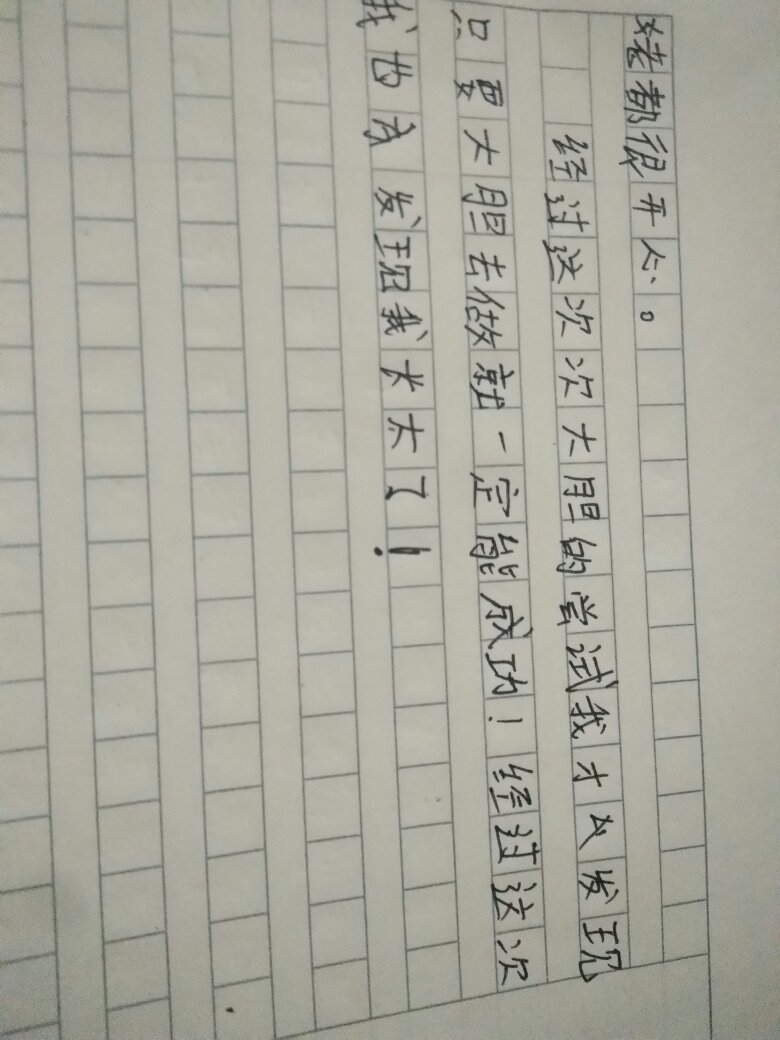 姥都很开心。
经过这次次大胆的尝试我才发现
只要大胆去做就一定能成功！经过这次
我也发现我长大了！